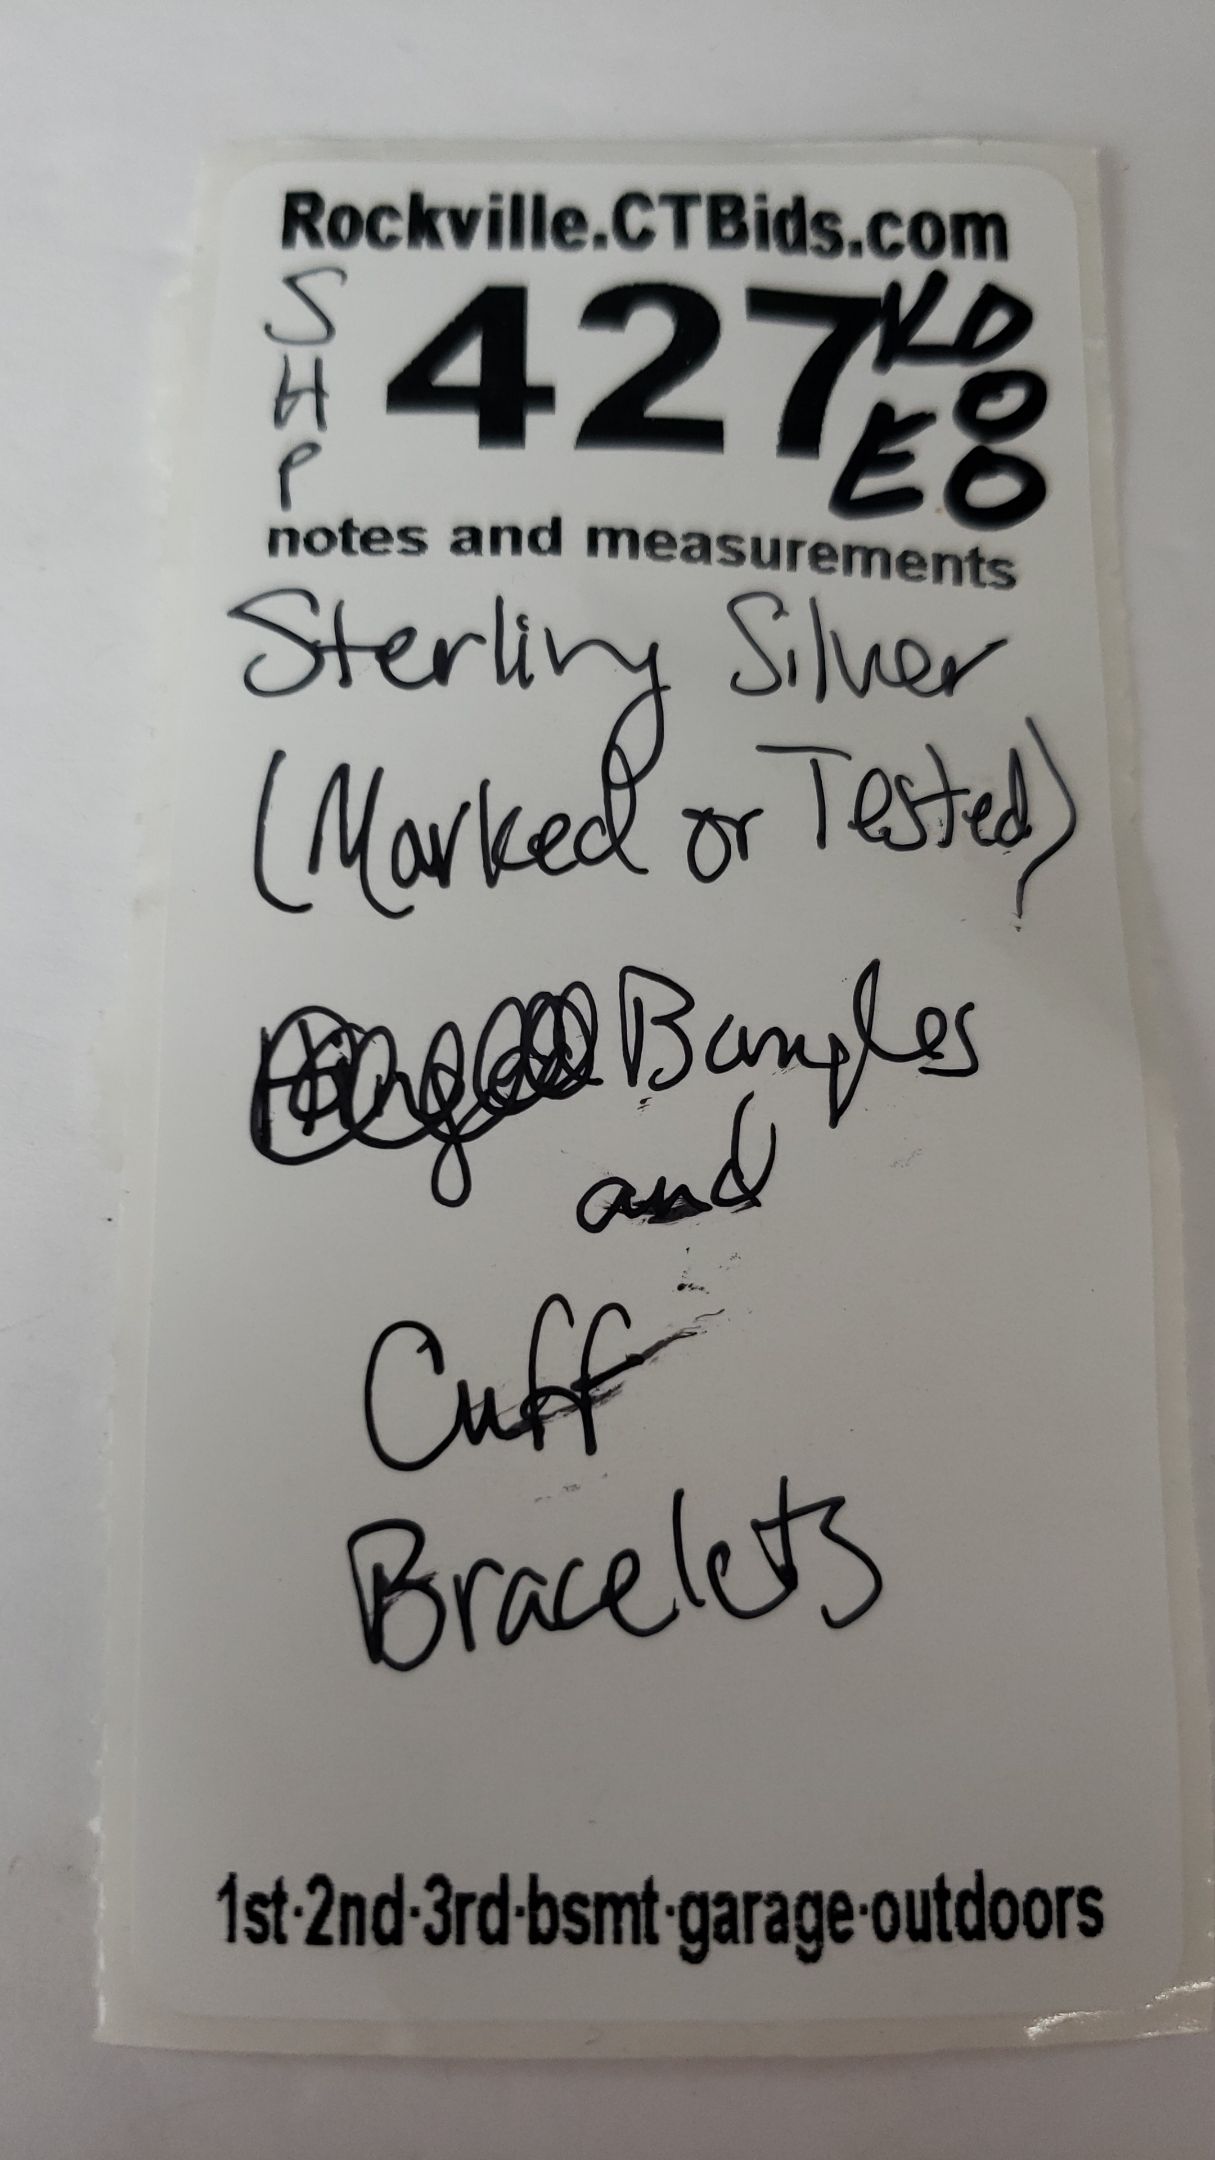 Rockville.CTBids.com
SHP
427
KDO
EO
notes and measurements
Sterling Silver
(Marked or Tested)
Bangles
and
Cuff
Bracelets
1st·2nd·3rd·bsmt·garage·outdoors